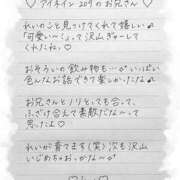 ♡ アイネイン 209 のお兄さん ♡
れいのこと見つけてくれて嬉しい♪
「可愛い〜！」って沢山ぎゅーして
くれたね♡
おそろいの飲み物も…いっぱい
色んなお話できて楽しかったな♪
お兄さんとノリとても合って、
ふざけ合えて素敵だな〜って
思ったよ♡
れいが育てます(笑)次も沢山
いじめちゃおっかな〜♪